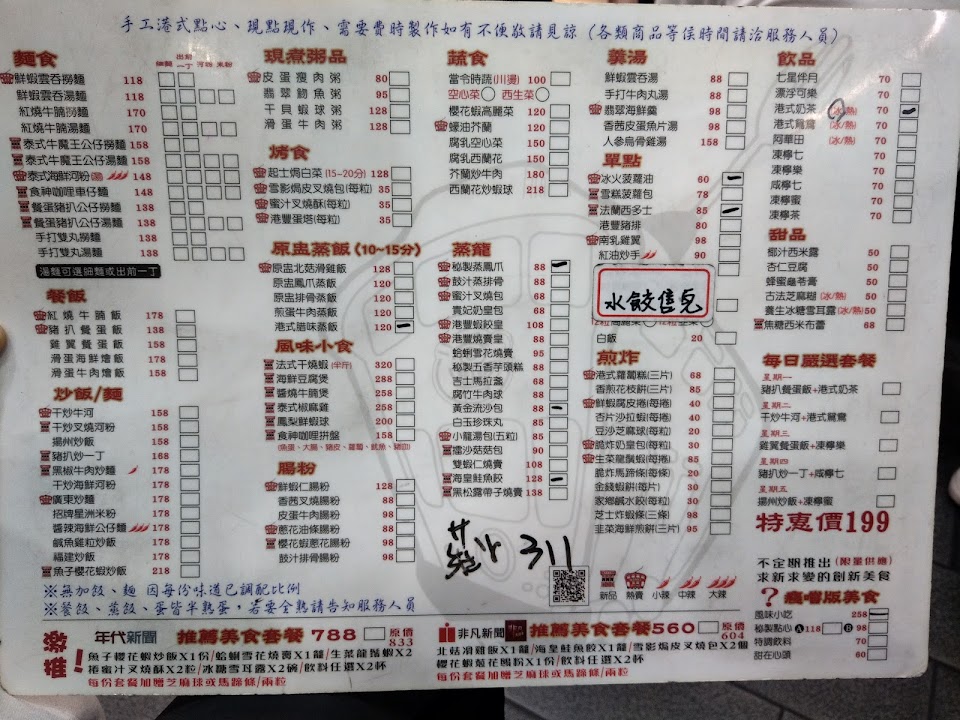 手工港式點心、現點現作、需要費時製作如有不便敬請見諒(各類商品等侯時間請洽服務人員)
麵食
細麵 出前一丁 河粉 米粉
鮮蝦雲吞撈麵 118
鮮蝦雲吞湯麵 118
紅燒牛腩撈麵 170
紅燒牛腩湯麵 170
泰式牛魔王公仔撈麵 158
泰式牛魔王公仔湯麵 158
泰式海鮮河粉(湯) 148
食神咖哩車仔麵 148
餐蛋豬扒公仔撈麵 138
餐蛋豬扒公仔湯麵 138
手打雙丸撈麵 138
手打雙丸湯麵 138
湯麵可選細麵或出前一丁
餐飯
紅燒牛腩飯 178
豬扒餐蛋飯 138
雞翼餐蛋飯 158
滑蛋海鮮燴飯 158
滑蛋牛肉燴飯 158
炒飯/麵
干炒牛河 158
干炒叉燒河粉 158
揚州炒飯 158
豬扒炒一丁 168
黑椒牛肉炒麵 178
干炒海鮮河粉 178
廣東炒麵 178
招牌星洲米粉 178
醬辣海鮮公仔麵 178
鹹魚雞粒炒飯 178
福建炒飯 178
魚子櫻花蝦炒飯 218
現煮粥品
皮蛋瘦肉粥 80
翡翠魩魚粥 95
干貝蝦球粥 128
滑蛋牛肉粥 128
烤食
起士焗白菜(15-20分) 128
雪影焗皮叉燒包(每粒) 35
蜜汁叉燒酥(每粒) 35
港豐蛋塔(每粒) 35
原盅蒸飯(10~15分)
原盅北菇滑雞飯 128
原盅鳳爪蒸飯 128
原盅排骨蒸飯 128
煎蛋牛肉蒸飯 128
港式腊味蒸飯 120
風味小食
法式干燒蝦(半斤) 320
海鮮豆腐煲 288
醬燒牛腩煲 288
泰式椒麻雞 288
鳳梨鮮蝦球 200
食神咖哩拼盤 288
(魚蛋、大腸、豬皮、蘿蔔、魷魚、豬血)
腸粉
鮮蝦仁腸粉 128
香茜叉燒腸粉 88
皮蛋牛肉腸粉 98
蔥花油條腸粉 88
櫻花蝦蔥花腸粉 98
豉汁排骨腸粉 98
蔬食
當令時蔬(川燙) 100
空心菜 西生菜
櫻花蝦高麗菜 120
蠔油芥蘭 120
腐乳空心菜 150
腐乳西蘭花 150
芥蘭炒牛肉 180
西蘭花炒蝦球 218
蒸籠
秘製蒸鳳爪 88
鼓汁蒸排骨 88
蜜汁叉燒包 68
貴妃奶皇包 68
港豐蝦餃皇 108
港豐燒賣皇 88
蛤蜊雪花燒賣 95
秘製五香芋頭糕 88
吉士馬拉盞 68
腐竹牛肉球 88
黃金流沙包 88
白玉珍珠丸 85
小龍湯包(五粒) 85
擂沙菇菇包 90
雙蝦仁燒賣 108
海皇鮭魚餃 128
黑松露帶子燒賣 138
羹湯
鮮蝦雲吞湯 88
手打牛肉丸湯 88
翡翠海鮮羹 98
香茜皮蛋魚片湯 98
人參烏骨雞湯 158
單點
冰火菠蘿油 60
雪糕菠蘿包 78
法蘭西多士 88
港豐豬排 80
南乳雞翼 98
紅油炒手 90
水餃售完
白飯 20
煎炸
港式蘿蔔糕(三片) 68
香煎花枝餅(三片) 88
鮮蝦腐皮捲(每捲) 40
杏片沙拉蝦(每捲) 40
豆沙芝麻球(每粒) 20
脆炸奶皇包(每粒) 30
生菜龍鬚蝦(每捲) 85
脆炸馬蹄條(每條) 20
金錢蝦餅(每片) 30
家鄉鹹水餃(每粒) 30
芝士炸蝦條(三條) 98
韭菜海鮮煎餅(三片) 95
飲品
七星伴月 70
漂浮可樂 70
港式奶茶 (冰/熱) 70
港式鴛鴦 (冰/熱) 70
阿華田 (冰/熱) 70
凍檸七 70
凍檸樂 70
咸檸七 70
凍檸蜜 70
凍檸茶 70
甜品
椰汁西米露 50
杏仁豆腐 50
蜂蜜龜苓膏 50
古法芝麻糊(冰/熱) 50
養生冰糖雪耳露(冰/熱) 50
焦糖西米布蕾 68
每日嚴選套餐
星期一
豬扒餐蛋飯+港式奶茶
星期二
干炒牛河+港式鴛鴦
星期三
雞翼餐蛋飯+凍檸樂
星期四
豬扒炒一丁+咸檸七
星期五
揚州炒飯+凍檸蜜
特惠價199
不定期推出(限量供應)
求新求變的創新美食
?癮嚐版美食
風味小吃 258
秘製點心 A 118 B 98
特調飲料 70
甜在心頭 60
311
新品 熱賣 小辣 中辣 大辣
※無加飯、麵 因每份味道已調配比例
※餐飯、蒸飯、蛋皆半熟蛋,若要全熟請告知服務人員
激推!
年代新聞 推薦美食套餐 788 原價 833
魚子櫻花蝦炒飯X1份/蛤蜊雪花燒賣X1籠/生菜龍鬚蝦X2
捲蜜汁叉燒酥X2粒/冰糖雪耳露X2碗/飲料任選X2杯
每份套餐加贈芝麻球或馬蹄條/兩粒
非凡新聞 推薦美食套餐560 原價 604
北菇滑雞飯X1籠/海皇鮭魚餃X1籠/雪影焗皮叉燒包X2個
櫻花蝦蔥花腸粉X1份/飲料任選X2杯
每份套餐加贈芝麻球或馬蹄條/兩粒